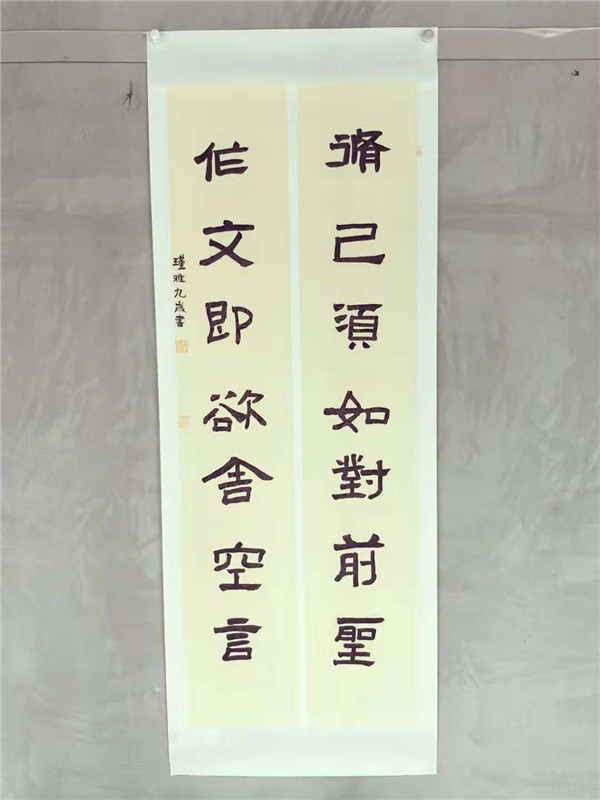 脩己須如對前聖
作文即欲舍空言
瑾雅九歲書